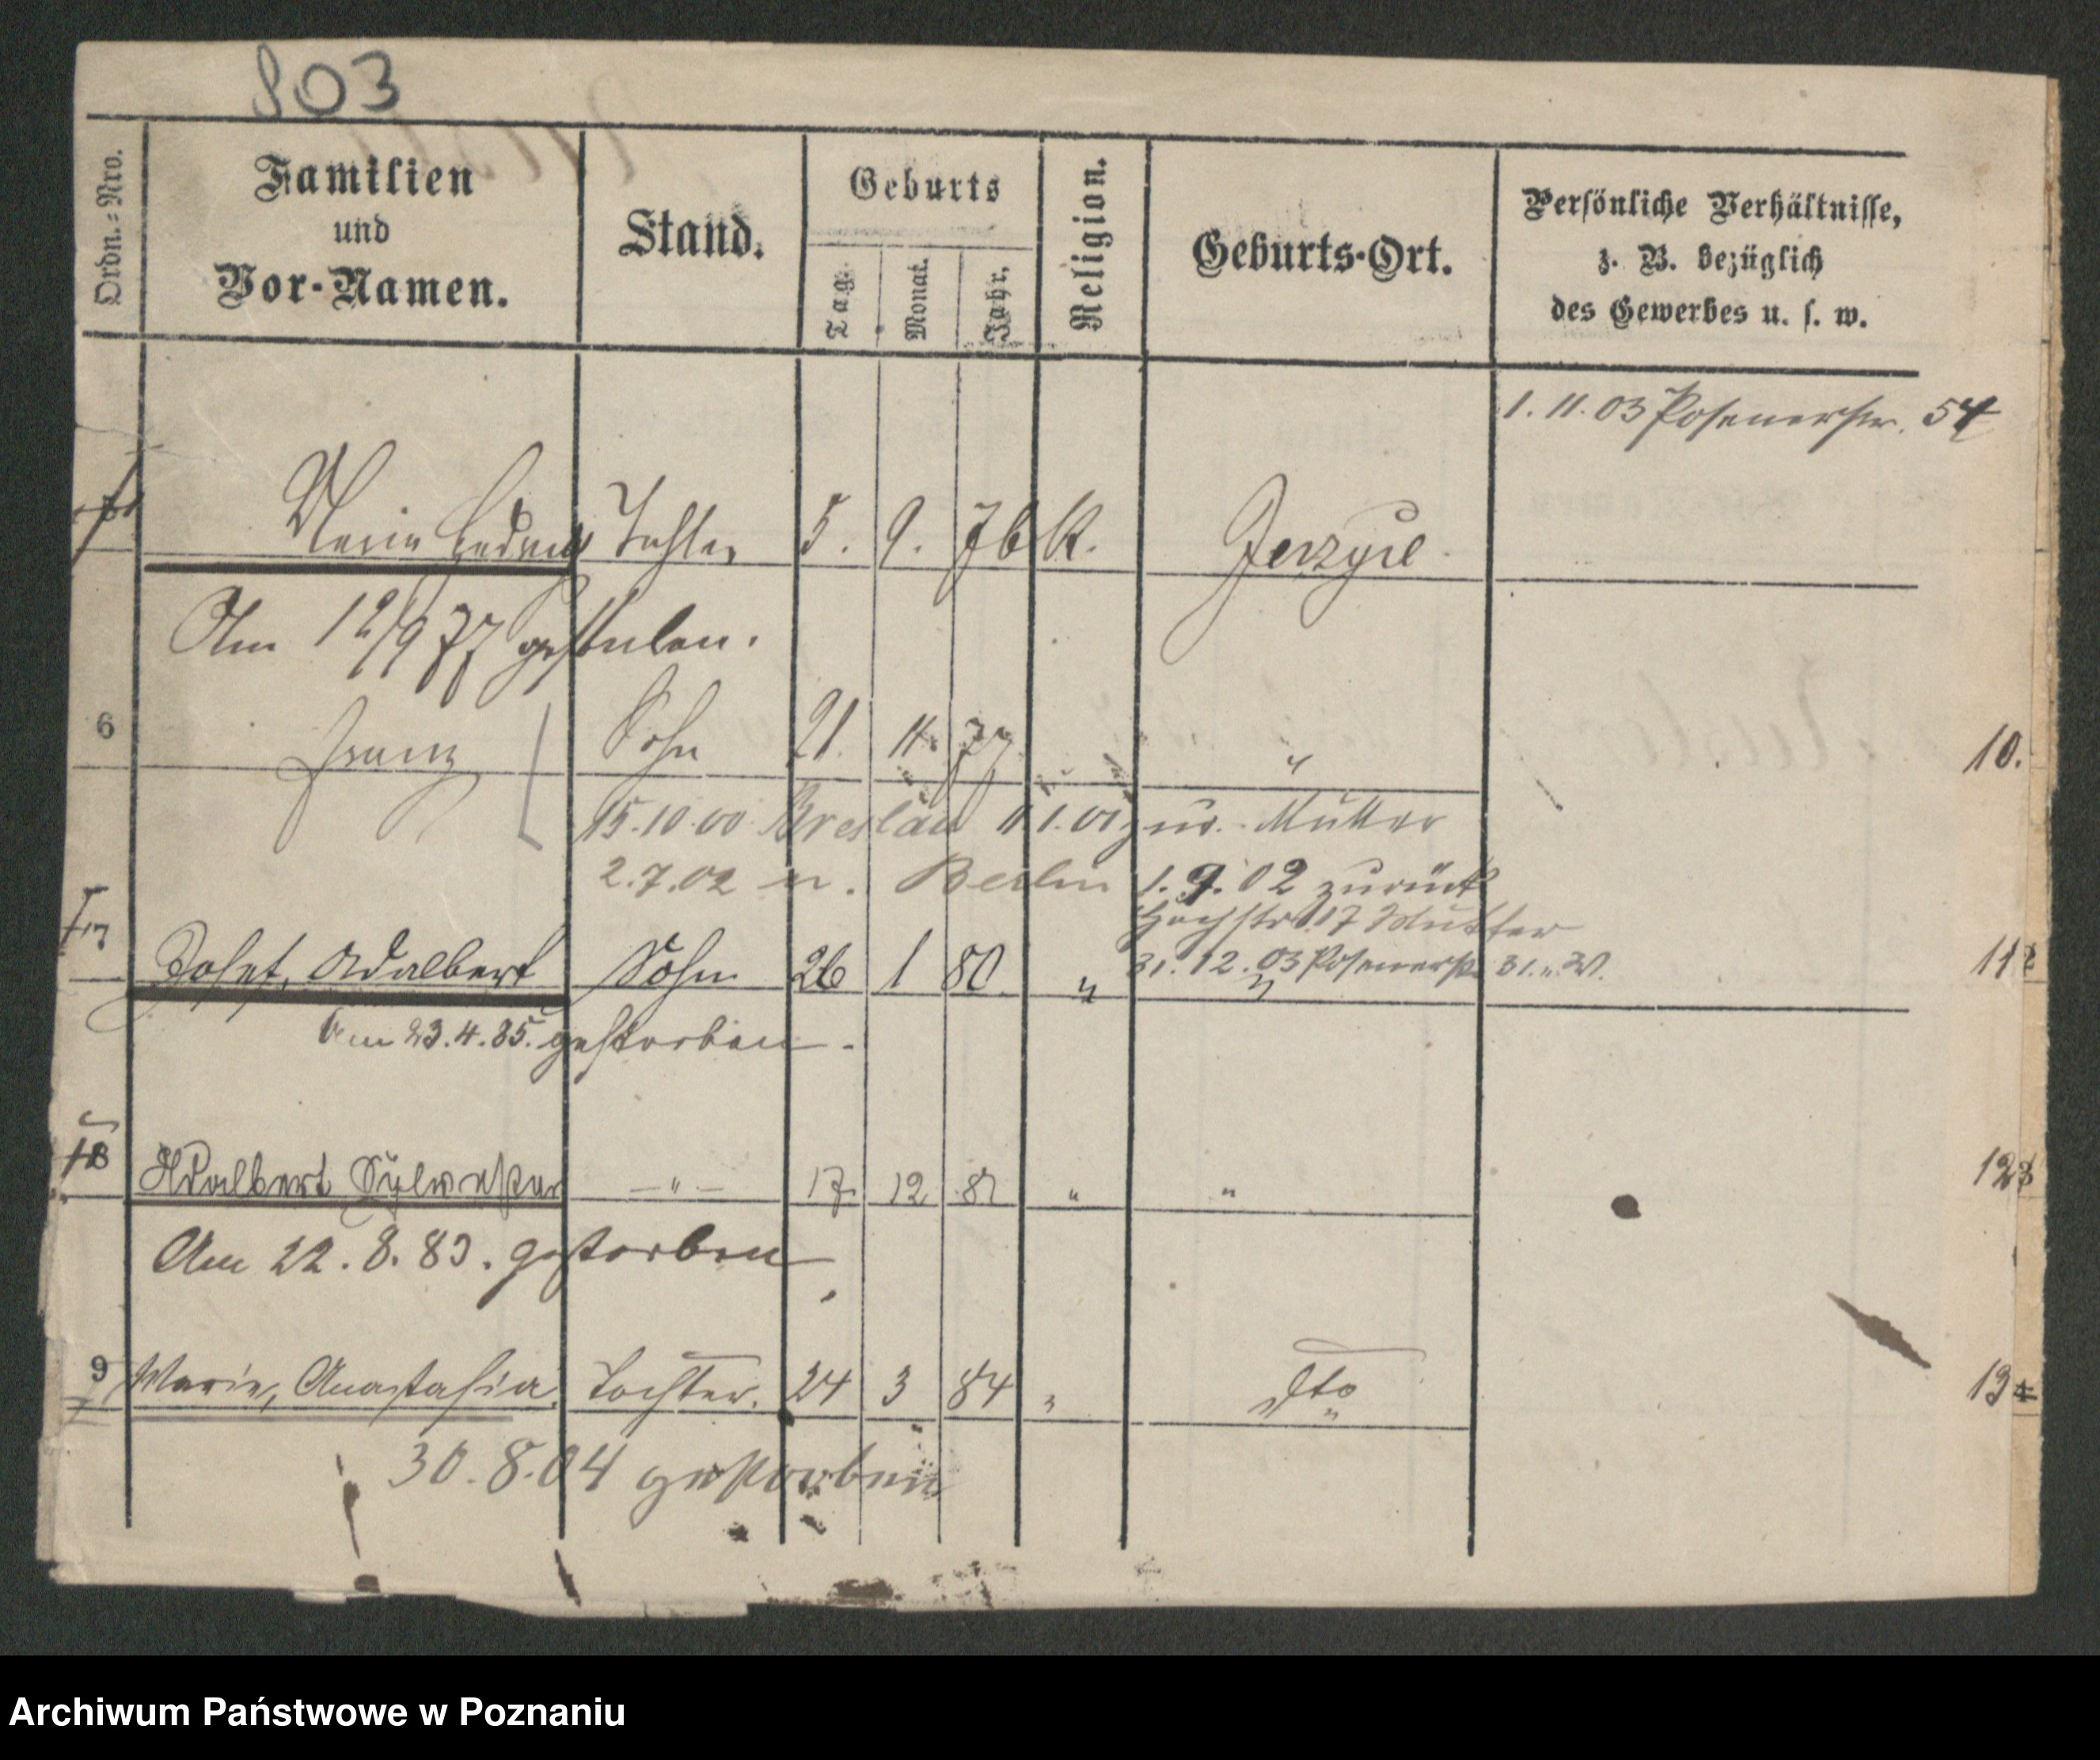 803
Ordn.-Nro.
Familien
und
Vor-Namen.
Stand.
Geburts
Tag.
Monat.
Jahr.
Religion.
Geburts-Ort.
Persönliche Verhältnisse,
z. B. bezüglich
des Gewerbes u. s. w.
1. 11. 03 Posenerstr. 54
Marie Tochter 5. 9. 76 K. Jerzyce
Am 12/9 77 gestorben.
6 Franz Sohn 21. 11. 77 "
10.
15.10.00 Breslau 11 1.01 zur. Mutter
2.7.02 n. Berlin 1. 9. 02 zurück
Hochstr. 17 Mutter
31. 12. 03 Posenerstr. 31. W.
7 Josef, Adalbert Sohn 26 1 80 " "
11
Am 23.4.85. gestorben.
8 Adalbert Sylvester - " - 17. 12 81 " "
12
Am 22. 8. 83. gestorben.
9 Marie, Anastasia Tochter. 24 3 84 " dto
13
30. 8. 04 gestorben
Archiwum Państwowe w Poznaniu